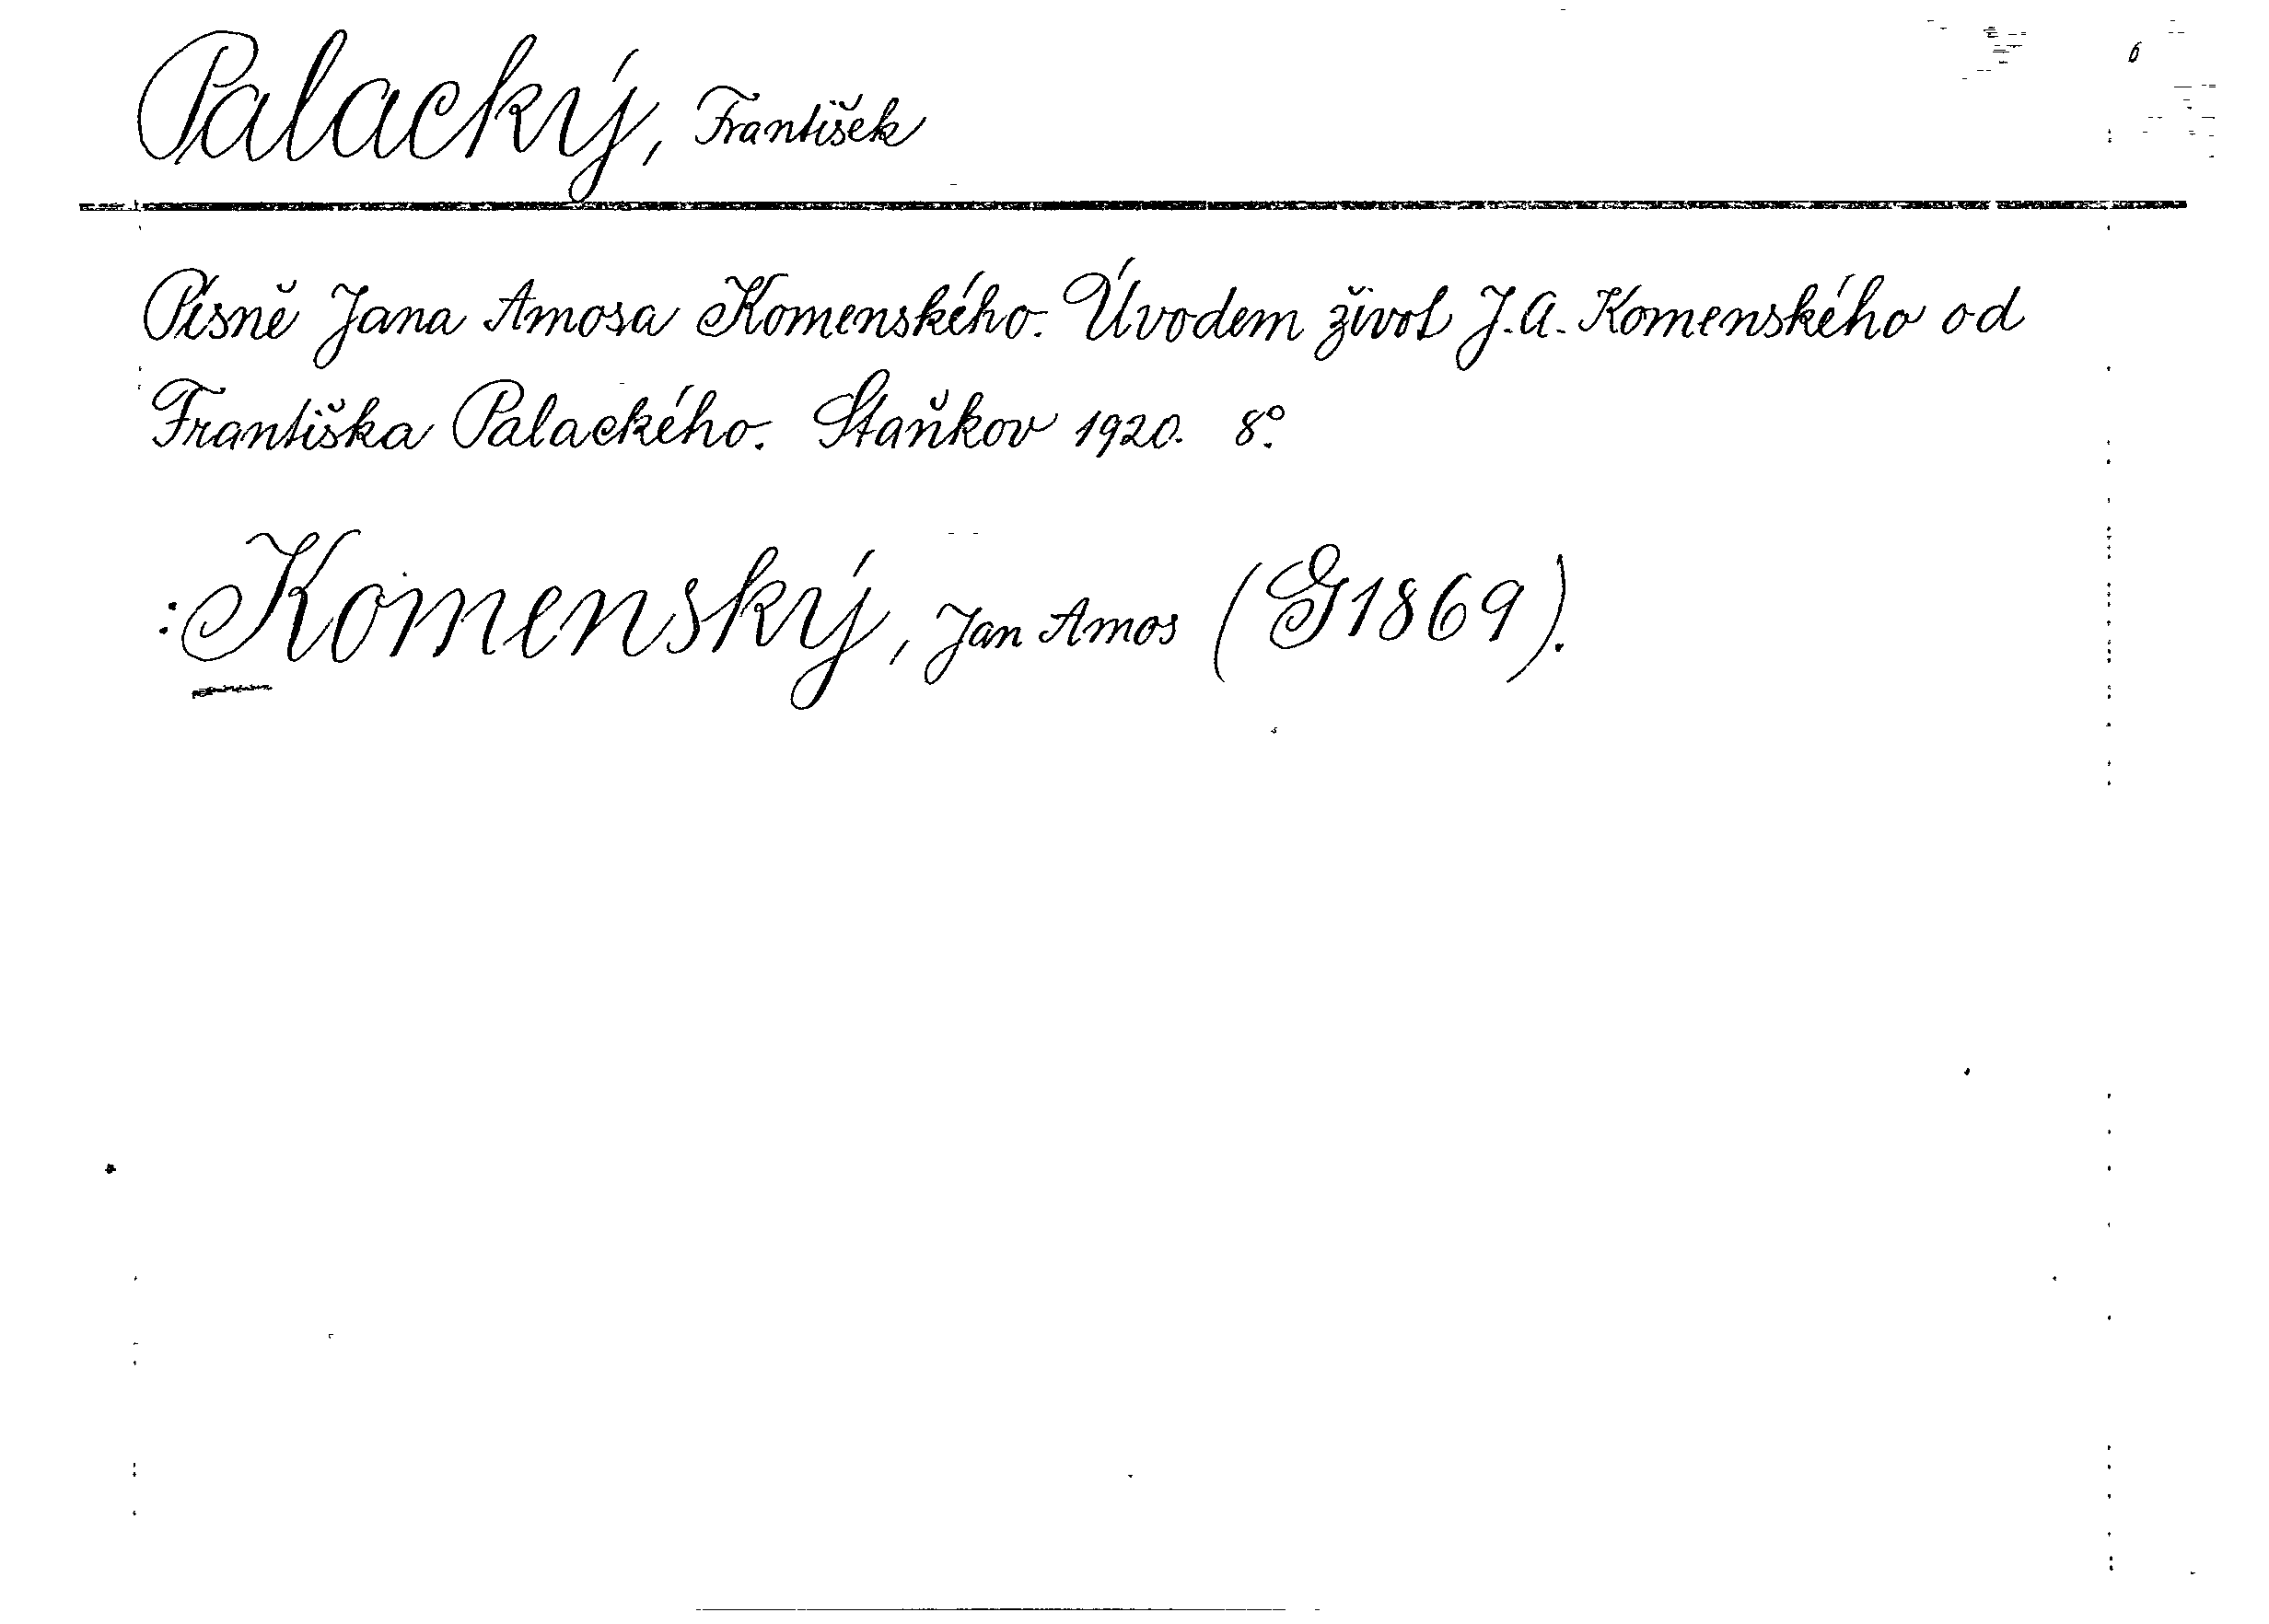 Palacký, František
6
Písně Jana Amosa Komenského. Úvodem život J. A. Komenského od
Františka Palackého. Staňkov 1920. 8°.
:Komenský, Jan Amos (G1869).